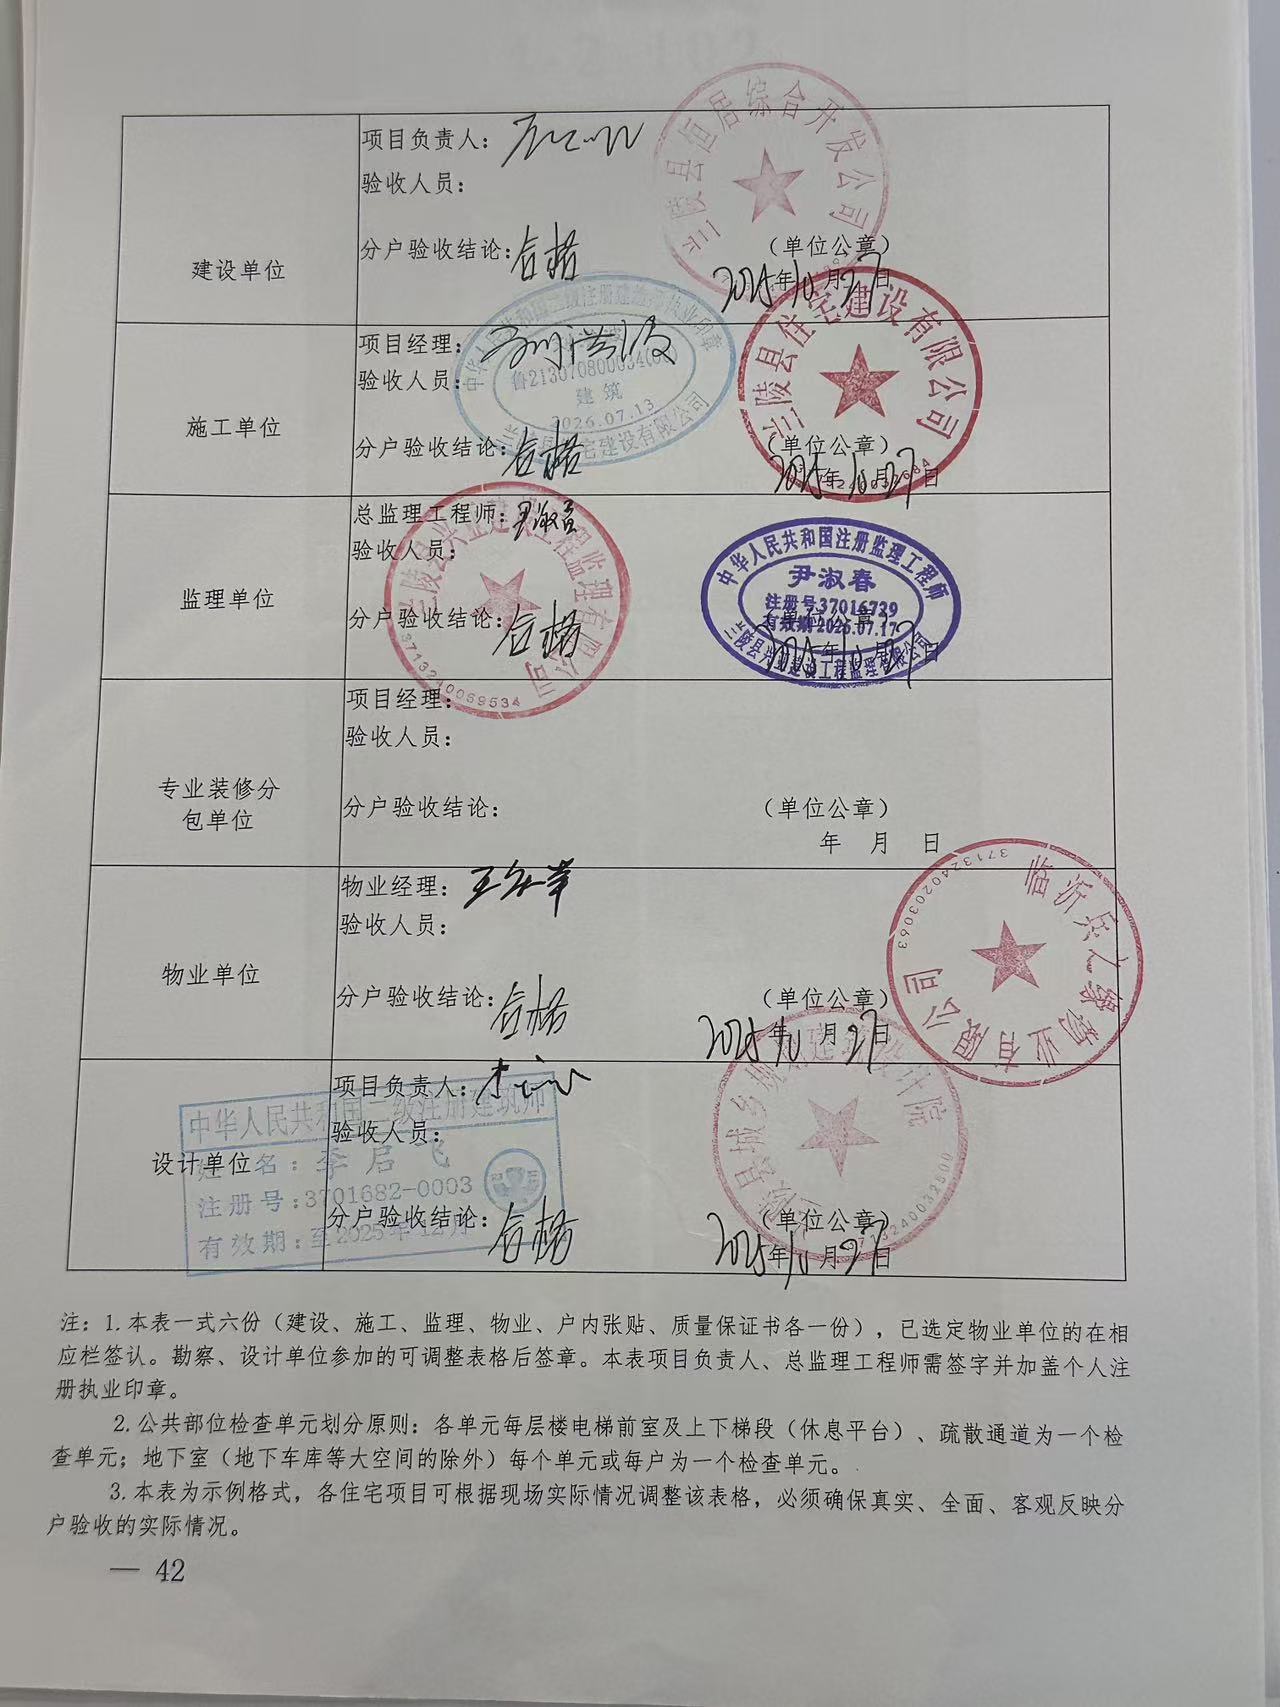 项目负责人：
兰陵县恒居综合开发公司
验收人员：
建设单位
分户验收结论：合格
（单位公章）
2025年10月27日
项目经理：
中华人民共和国二级注册建造师执业印章
鲁213070800034(01)
建筑
2026.07.13
兰陵县住宅建设有限公司
验收人员：
施工单位
兰陵县住宅建设有限公司
分户验收结论：合格
（单位公章）
2025年10月27日
总监理工程师：尹淑春
验收人员：
监理单位
兰陵县兴业建设工程监理有限公司
3713240069534
中华人民共和国注册监理工程师
尹淑春
注册号37016739
有效期2026.07.17
兰陵县兴业建设工程监理有限公司
分户验收结论：合格
（单位公章）
2025年10月27日
项目经理：
验收人员：
专业装修分
包单位
分户验收结论：
（单位公章）
年 月 日
物业经理：
验收人员：
物业单位
3713240203063
分户验收结论：合格
（单位公章）
2025年10月27日
项目负责人：
中华人民共和国二级注册建筑师
验收人员：
设计单位
姓名：李启飞
注册号：3701682-0003
有效期：至2025年12月
分户验收结论：合格
（单位公章）
2025年10月27日
注：1.本表一式六份（建设、施工、监理、物业、户内张贴、质量保证书各一份），已选定物业单位的在相
应栏签认。勘察、设计单位参加的可调整表格后签章。本表项目负责人、总监理工程师需签字并加盖个人注
册执业印章。
2.公共部位检查单元划分原则：各单元每层楼电梯前室及上下梯段（休息平台）、疏散通道为一个检
查单元；地下室（地下车库等大空间的除外）每个单元或每户为一个检查单元。
3.本表为示例格式，各住宅项目可根据现场实际情况调整该表格，必须确保真实、全面、客观反映分
户验收的实际情况。
— 42